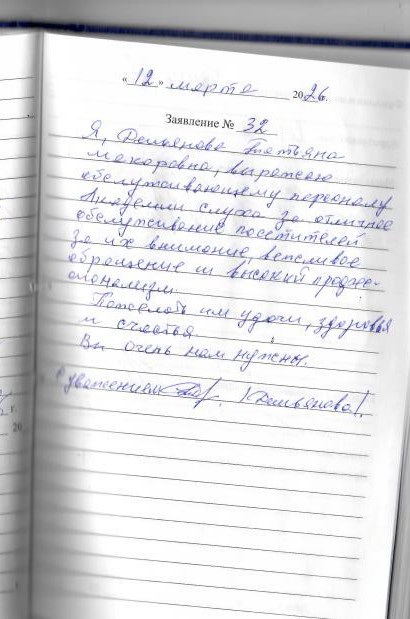 « 12 » марта 2026.
Заявление № 32
Я, Демьянова Татьяна
Макаровна, выражаю
обслуживающему персоналу
Академии слуха за отличное
обслуживание посетителей
за их внимание, вежливое
обращение и высокий профес-
сионализм.
Пожелать им удачи, здоровья
и счастья.
Вы очень нам нужны.
С уважением /Демьянова/.
г.
20